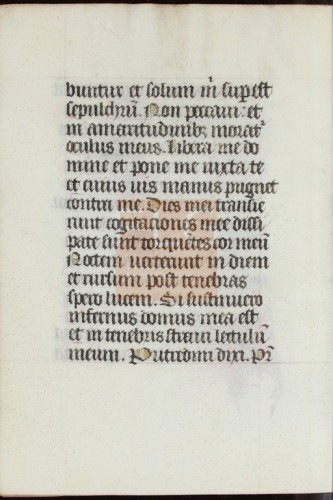 buntur et solum m̄ sup̄ est
sepulchrū. Non peccaui: et
in amaritudinibꝫ morat᷑
oculus meus. Libera me do
mine et pone me iuxta te
et cuius uis manus pugnet
contra me. Dies mei transie
runt cogitaciones mee dissi
pate sunt torquētes cor meū
Noctem uerterunt in diem
et rursum post tenebras
spero lucem. Si sustinuero
infernus domus mea est
et in tenebris straui lectulū
meum. Putredini dixi. Pr̄